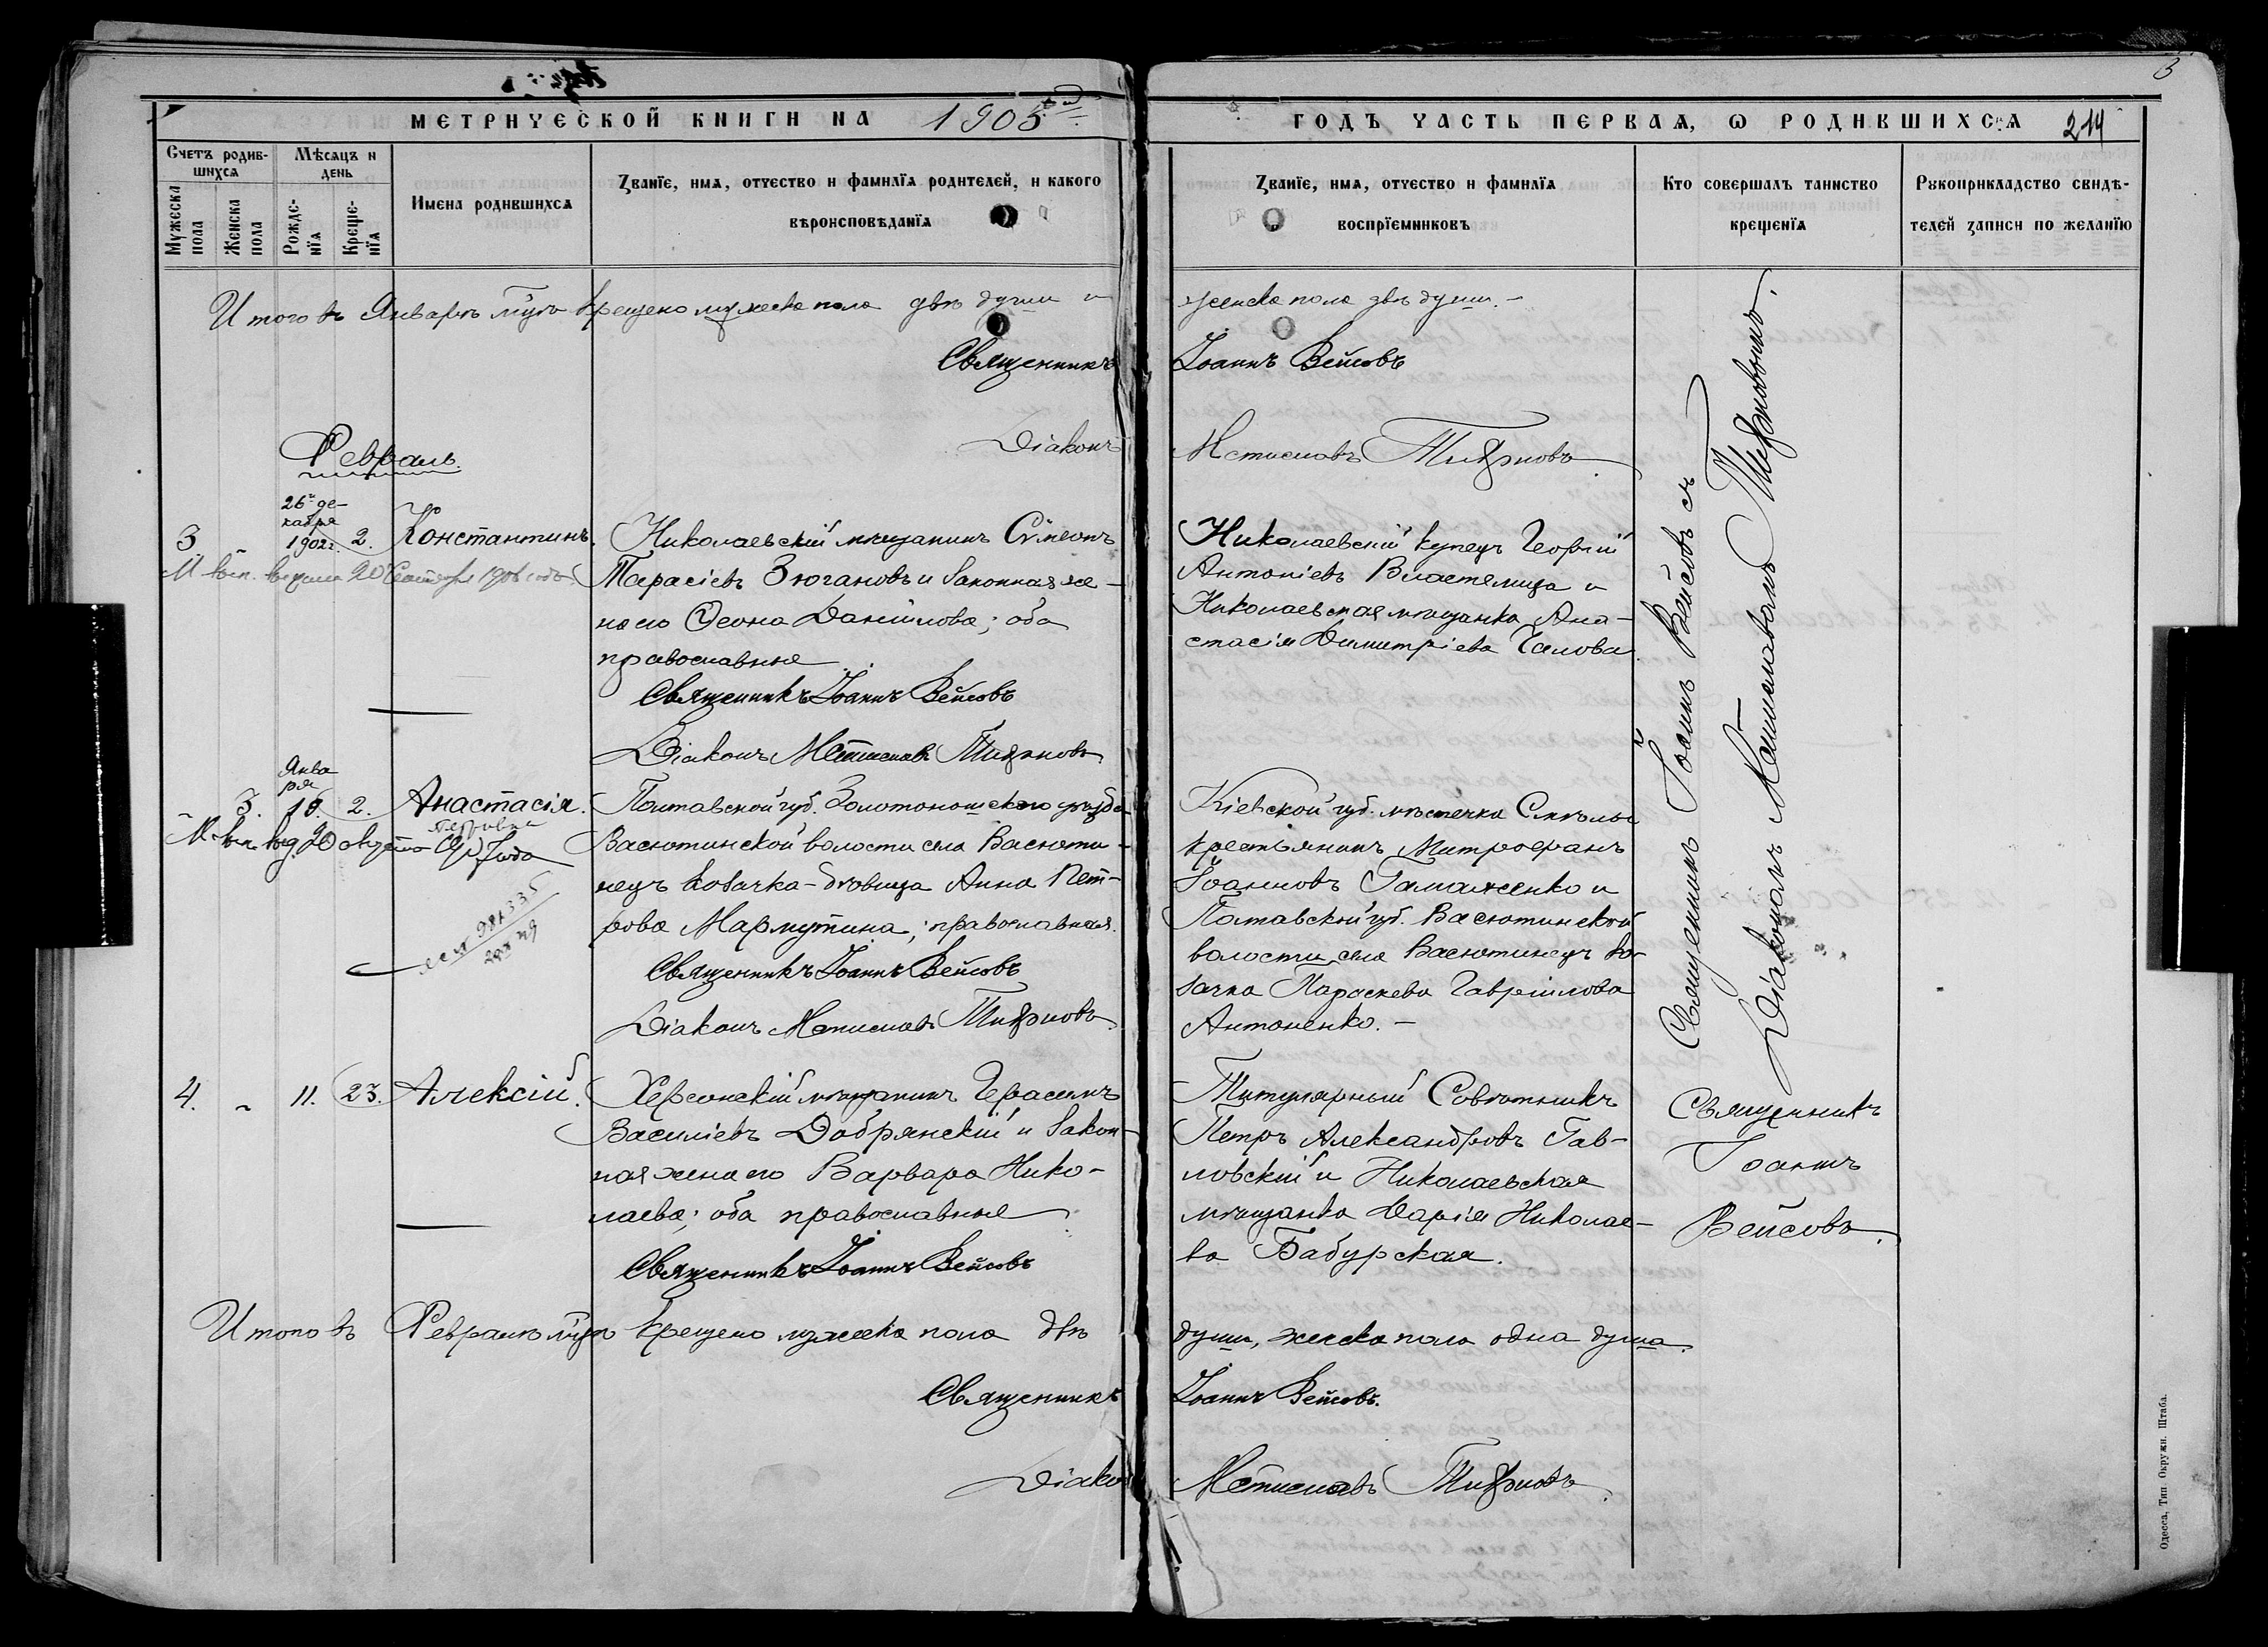 3
МЕТРИЧЕСКОЙ КНИГИ НА 1905 ГОДЪ ЧАСТЬ ПЕРВАЯ, Ѡ РОДИВШИХСЯ 214
Счетъ родив-
шихся
Мѣсяцъ и
день
Мужеска
пола
Женска
пола
Рожде-
нїя
Креще-
нїя
Имена родившихся
Званїе, имя, отчество и фамилїя родителей, и какого
вѣроисповѣданїя
Званїе, имя, отчество и фамилїя
воспрїемниковъ
Кто совершалъ таинство
крещенїя
Рукоприкладство свидѣ-
телей записи по желанїю
Итого въ Январѣ м-цѣ крещено мужеска пола двѣ души и женска пола двѣ души. -
Священникъ Іоаннъ Вейсовъ
Діаконъ Мстиславъ
Февраль.
26го де-
кабря
1902 г.
3 2. Константинъ.
20 Сентября
Николаевскій мѣщанинъ Сѵмеонъ
Тарасіевъ Зюгановъ и законная же-
на его Ѳеона Даніилова; оба
православные
Священникъ Іоаннъ Вейсовъ
Діаконъ Мстиславъ
Николаевскій купецъ Георгій
Антоніевъ Властелица и
Николаевская мѣщанка Ана-
стасія Димитріева Галова
Янва
ря
3. 18. 2. Анастасія.
Полтавской губ. Золотоношскаго уѣзда
Васютинской волости села Васюти-
нецъ козачка-дѣвица Анна Пет-
рова Мармутина, православная.
Священникъ Іоаннъ Вейсовъ
Діаконъ Мстиславъ
Кіевской губ. мѣстечка Смѣлы
крестьянинъ Митрофанъ
Іоанновъ Гамаженко и
Полтавской губ. Васютинской
волости села Васютинецъ ко-
зачка Параскева Гавріилова
Антоненко. -
Священникъ Іоаннъ Вейсовъ съ
Діакономъ Мстиславомъ
4. " 11. 23. Алексій.
Херсонскій мѣщанинъ Герасимъ
Василіевъ Добрянскій и закон-
ная жена его Варвара Нико-
лаева; оба православные
Священникъ Іоаннъ Вейсовъ
Титулярный Совѣтникъ
Петръ Александровъ Гав-
ловскій и Николаевская
мѣщанка Дарія Николае-
ва Бабурская.
Священникъ
Іоаннъ
Вейсовъ.
Итого въ Февралѣ м-цѣ крещено мужеска пола двѣ души, женска пола одна душа.
Священникъ Іоаннъ Вейсовъ.
Діаконъ Мстиславъ
Одесса, Тип. Окружн. Штаба.